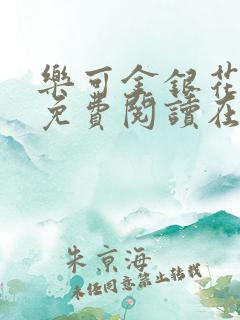 樂可金銀花
免費閱讀在
朱京海
未經同意禁止轉載